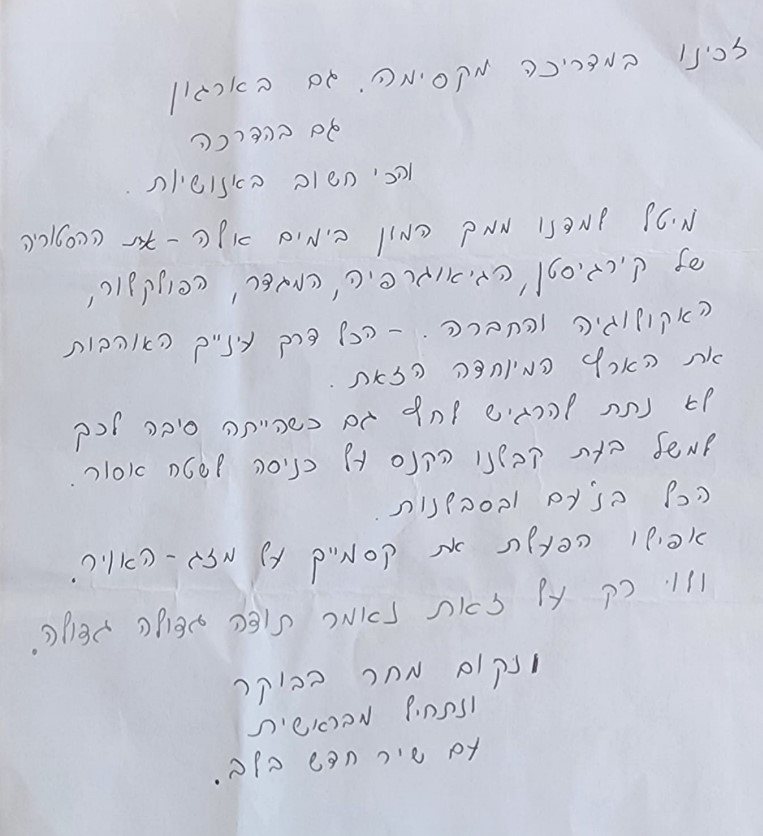 זכינו במדריכה מקסימה. גם בארגון
גם בהדרכה
והכי חשוב באנושיות.
מיטל למדנו ממך המון בימים אלה - את ההסטוריה
של קירגיסטן, הגיאוגרפיה, המגדר, הפולקלור,
האקולוגיה והחברה. - הכל דרך עינייך האוהבות
את הארץ המיוחדה הזאת.
לא נתת להרגיש לחץ גם כשהייתה סיבה לכך
למשל בעת קבלנו הקנס על כניסה לשטח אסור.
הכל בנעם ובסבלנות.
אפילו הפעלת את קסמייך על מזג-האויר.
ולו רק על זאת נאמר תודה גדולה גדולה.
ונקום מחר בבוקר
ונתחיל מבראשית
עם שיר חדש בלב.